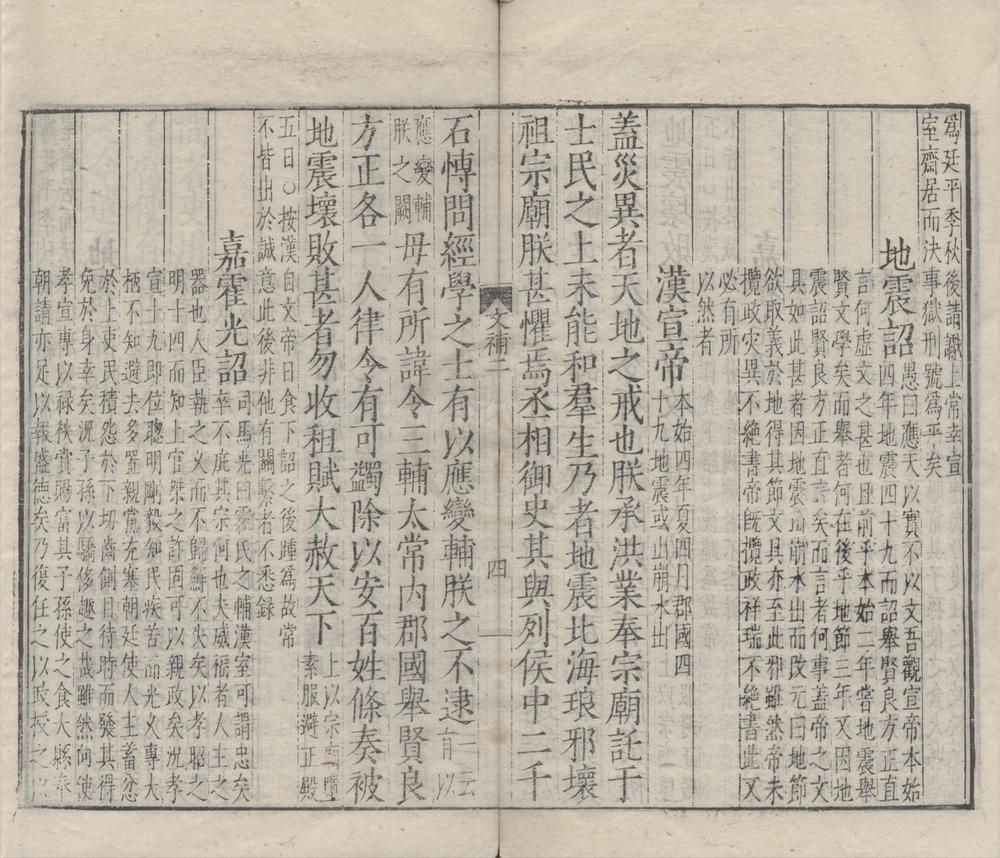 為廷平季秋後請讞上常幸宣
室齋居而決事獄刑號為平矣
地震詔
愚曰應天以實不以文吾觀宣帝本始
四年地震四十九而詔舉賢良方正直
言何虛文之甚也且前乎本始二年嘗地震舉
賢文學矣而舉者何在後乎地節三年又因地
震詔賢良方正直言矣而言者何事蓋帝之文
具如此甚者因地震而崩水出而改元曰地節
欲取義於地得其節文具亦至此邪雖然帝未
攬政灾異不絕書帝既攬政祥瑞不絕書此又
必有所
以然者
漢宣帝
本始四年夏四月郡國四
十九地震或山崩水出
蓋災異者天地之戒也朕承洪業奉宗廟託于
士民之上未能和羣生乃者地震北海琅邪壞
祖宗廟朕甚懼焉丞相御史其與列侯中二千
文補二
四
石愽問經學之士有以應變輔朕之不逮
一云
有以
應變輔
朕之闕
毋有所諱令三輔太常內郡國舉賢良
方正各一人律令有可蠲除以安百姓條奏被
地震壞敗甚者勿收租賦大赦天下
上以宗廟墮
素服避正殿
五日○按漢自文帝日食下詔之後踵為故常
不皆出於誠意此後非他有關繫者不悉錄
嘉霍光詔
司馬光曰霍氏之輔漢室可謂忠矣
然卒不庇其宗何也夫威福者人主之
器也人臣執之久而不歸鮮不失矣以孝昭之
明十四而知上官桀之詐固可以親政矣况孝
宣十九即位聰明剛毅知民疾苦而光久專大
柄不知避去多置親黨充塞朝廷使人主蓄忿
於上吏民積怨於下切齒側目待時而發其得
免於身幸矣况子孫以驕侈趣之哉雖然向使
孝宣專以祿秩賞賜富其子孫使之食大縣奉
朝請亦足以報盛德矣乃復任之以政授之以